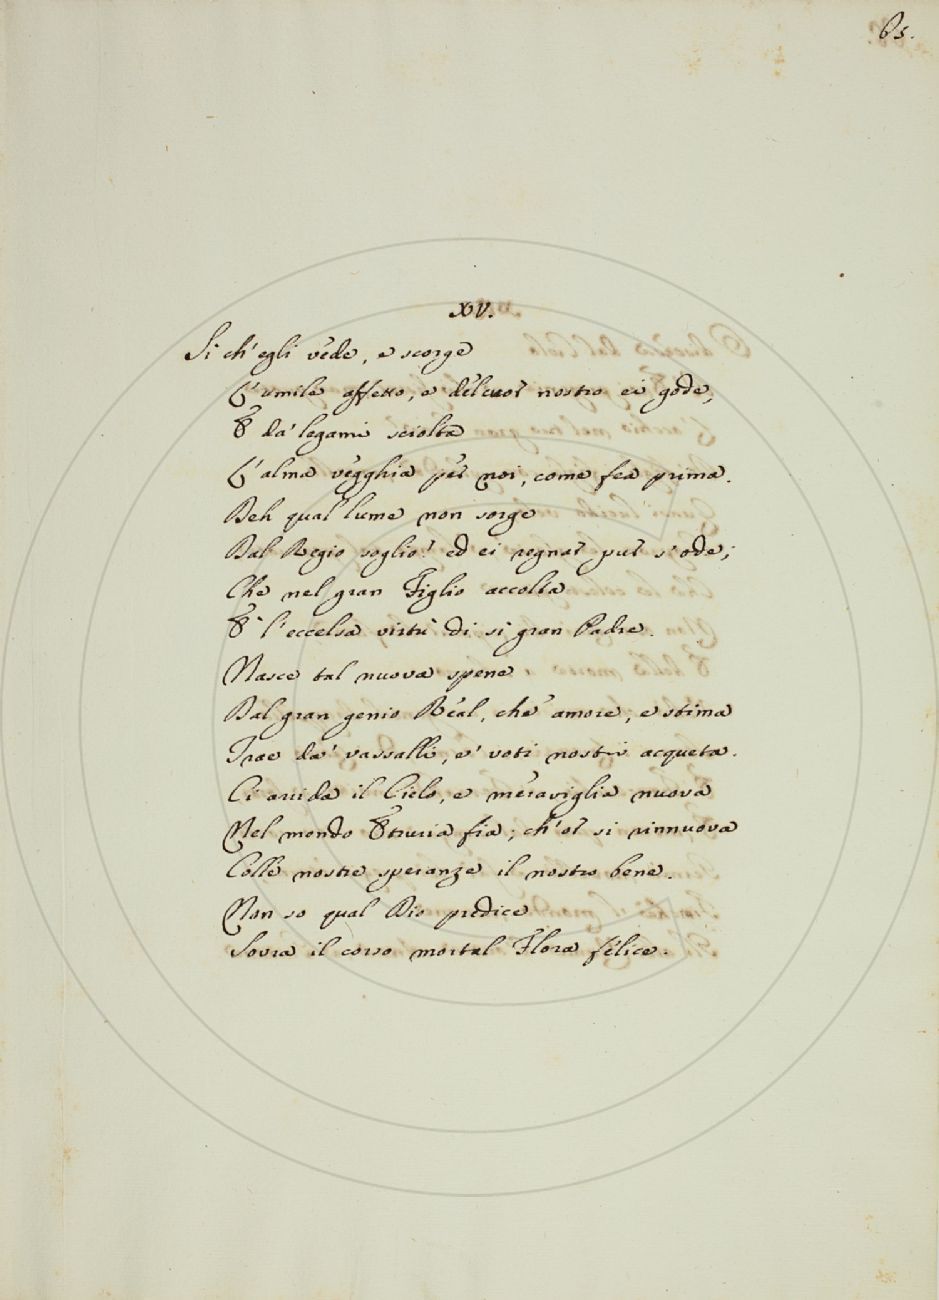 65.
XV.
Si ch' egli vede, e scorge
L' umile affetto, e del cuor nostro ei gode,
E da' legami sciolta
L' alma vegghia per noi, come fea prima.
Deh qual lume non sorge
Dal Regio soglio! ed ei regnar pur s' ode;
Che nel gran Figlio accolta
E' l' eccelsa virtù di si gran Padre.
Nasce tal nuova spene
Dal gran genio Real, che amore, e stima
Trae da' vassalli, e' voti nostri acqueta.
Ci arrida il Cielo, e meraviglia nuova
Nel mondo Etruria fia; ch' or si rinnuova
Colle nostre speranze il nostro bene.
Non so qual Dio predice
Sovra il corso mortal Flora felice.